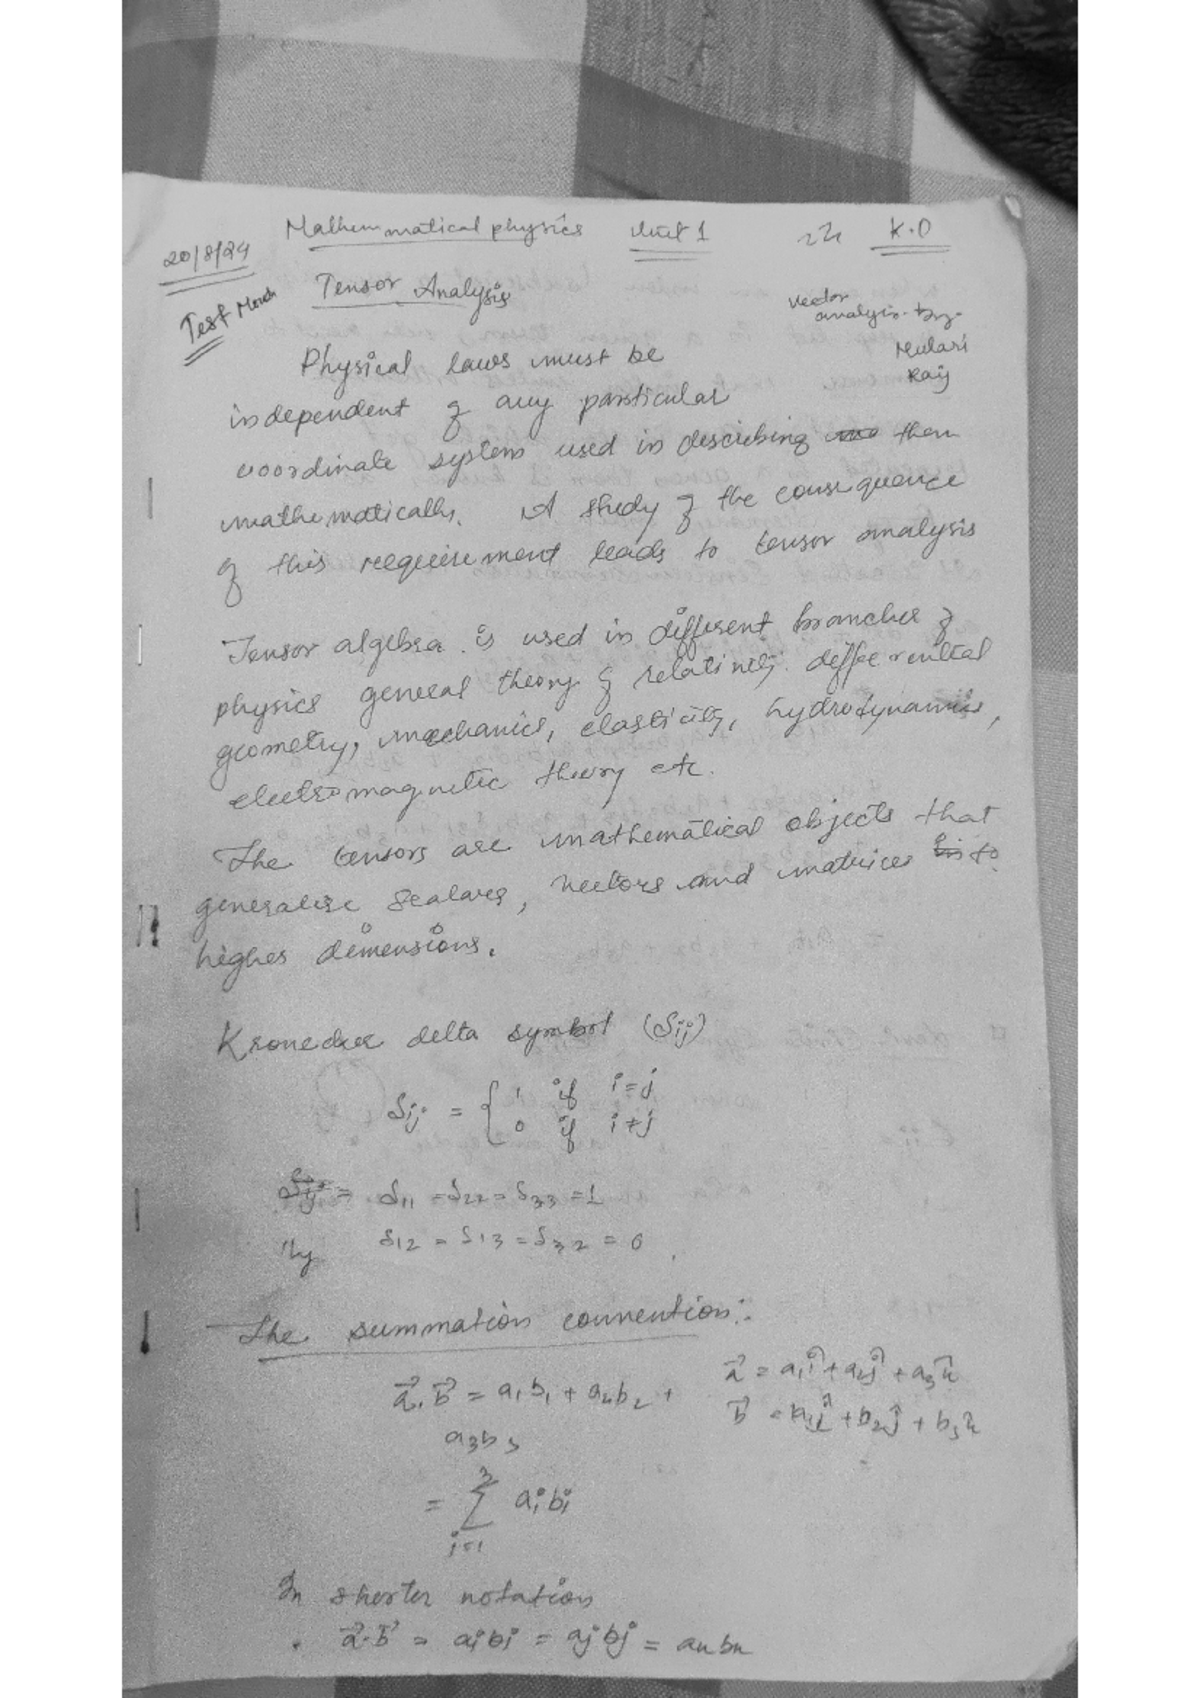 Mathemmatical physics Unit 1 K.O
20/8/24
Tensor Analysis
Test March
Vector
analysis by
Mulari
Ray
Physical laws must be
independent of any particular
coordinate system used in describing them
mathematically. A study of the consequence
of this requirement leads to tensor analysis
Tensor algebra is used in different branches of
physics general theory of relativity differential
geometry, mechanics, elasticity, hydrodynamics,
electromagnetic theory etc.
The tensors are mathematical objects that
generalise scalars, vectors and matrices to
higher dimensions.
Kronecker delta symbol (δij)
δij = { 1 if i=j
0 if i≠j
δij = δ11 = δ22 = δ33 = 1
lly δ12 = δ13 = δ32 = 0
The summation convention:
a⃗.b⃗ = a1b1 + a2b2 + a⃗ = a1î + a2ĵ + a3k̂
a3b3 b⃗ = b1î + b2ĵ + b3k̂
3
= Σ aibi
i=1
In shorter notation
a⃗.b⃗ = aibi = ajbj = akbk